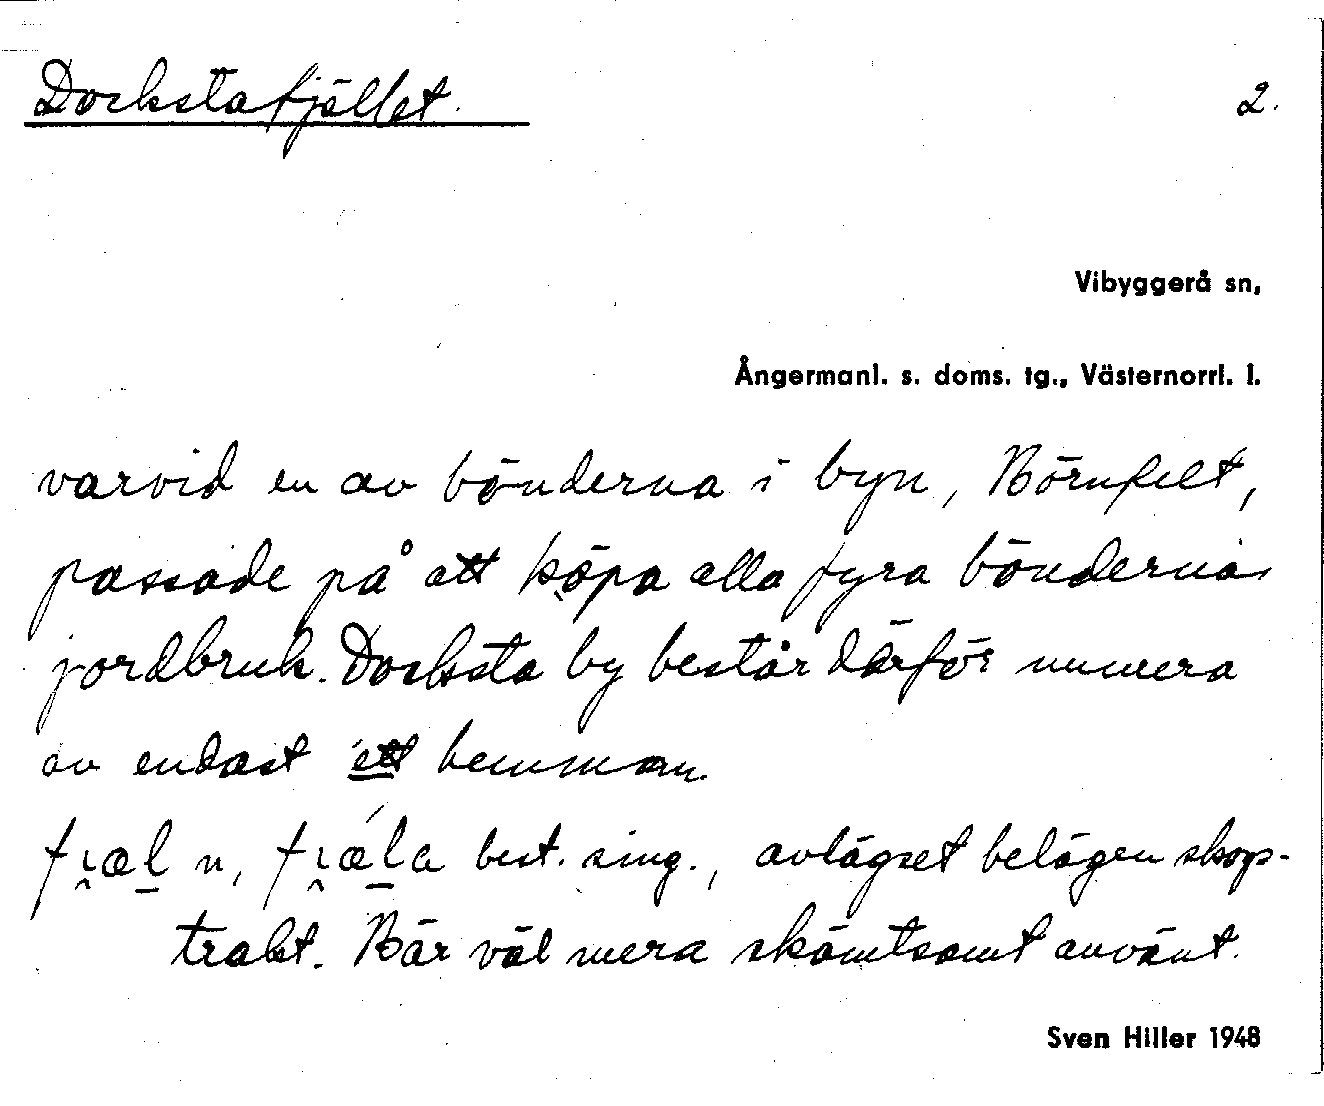 Docksta fjället.
2.
Vibyggerå sn,
Ångermanl. s. doms. tg., Västernorrl. l.
varvid en av bönderna i byn, Börnfelt,
passade på att köpa alla fyra böndernas
jordbruk. Docksta by består därför numera
av endast ett hemman.
fi̯æl̲ n, fi̯ǽl̲a best. sing., avlägset belägen skogs-
trakt. Här väl mera skämtsamt använt.
Sven Hiller 1948